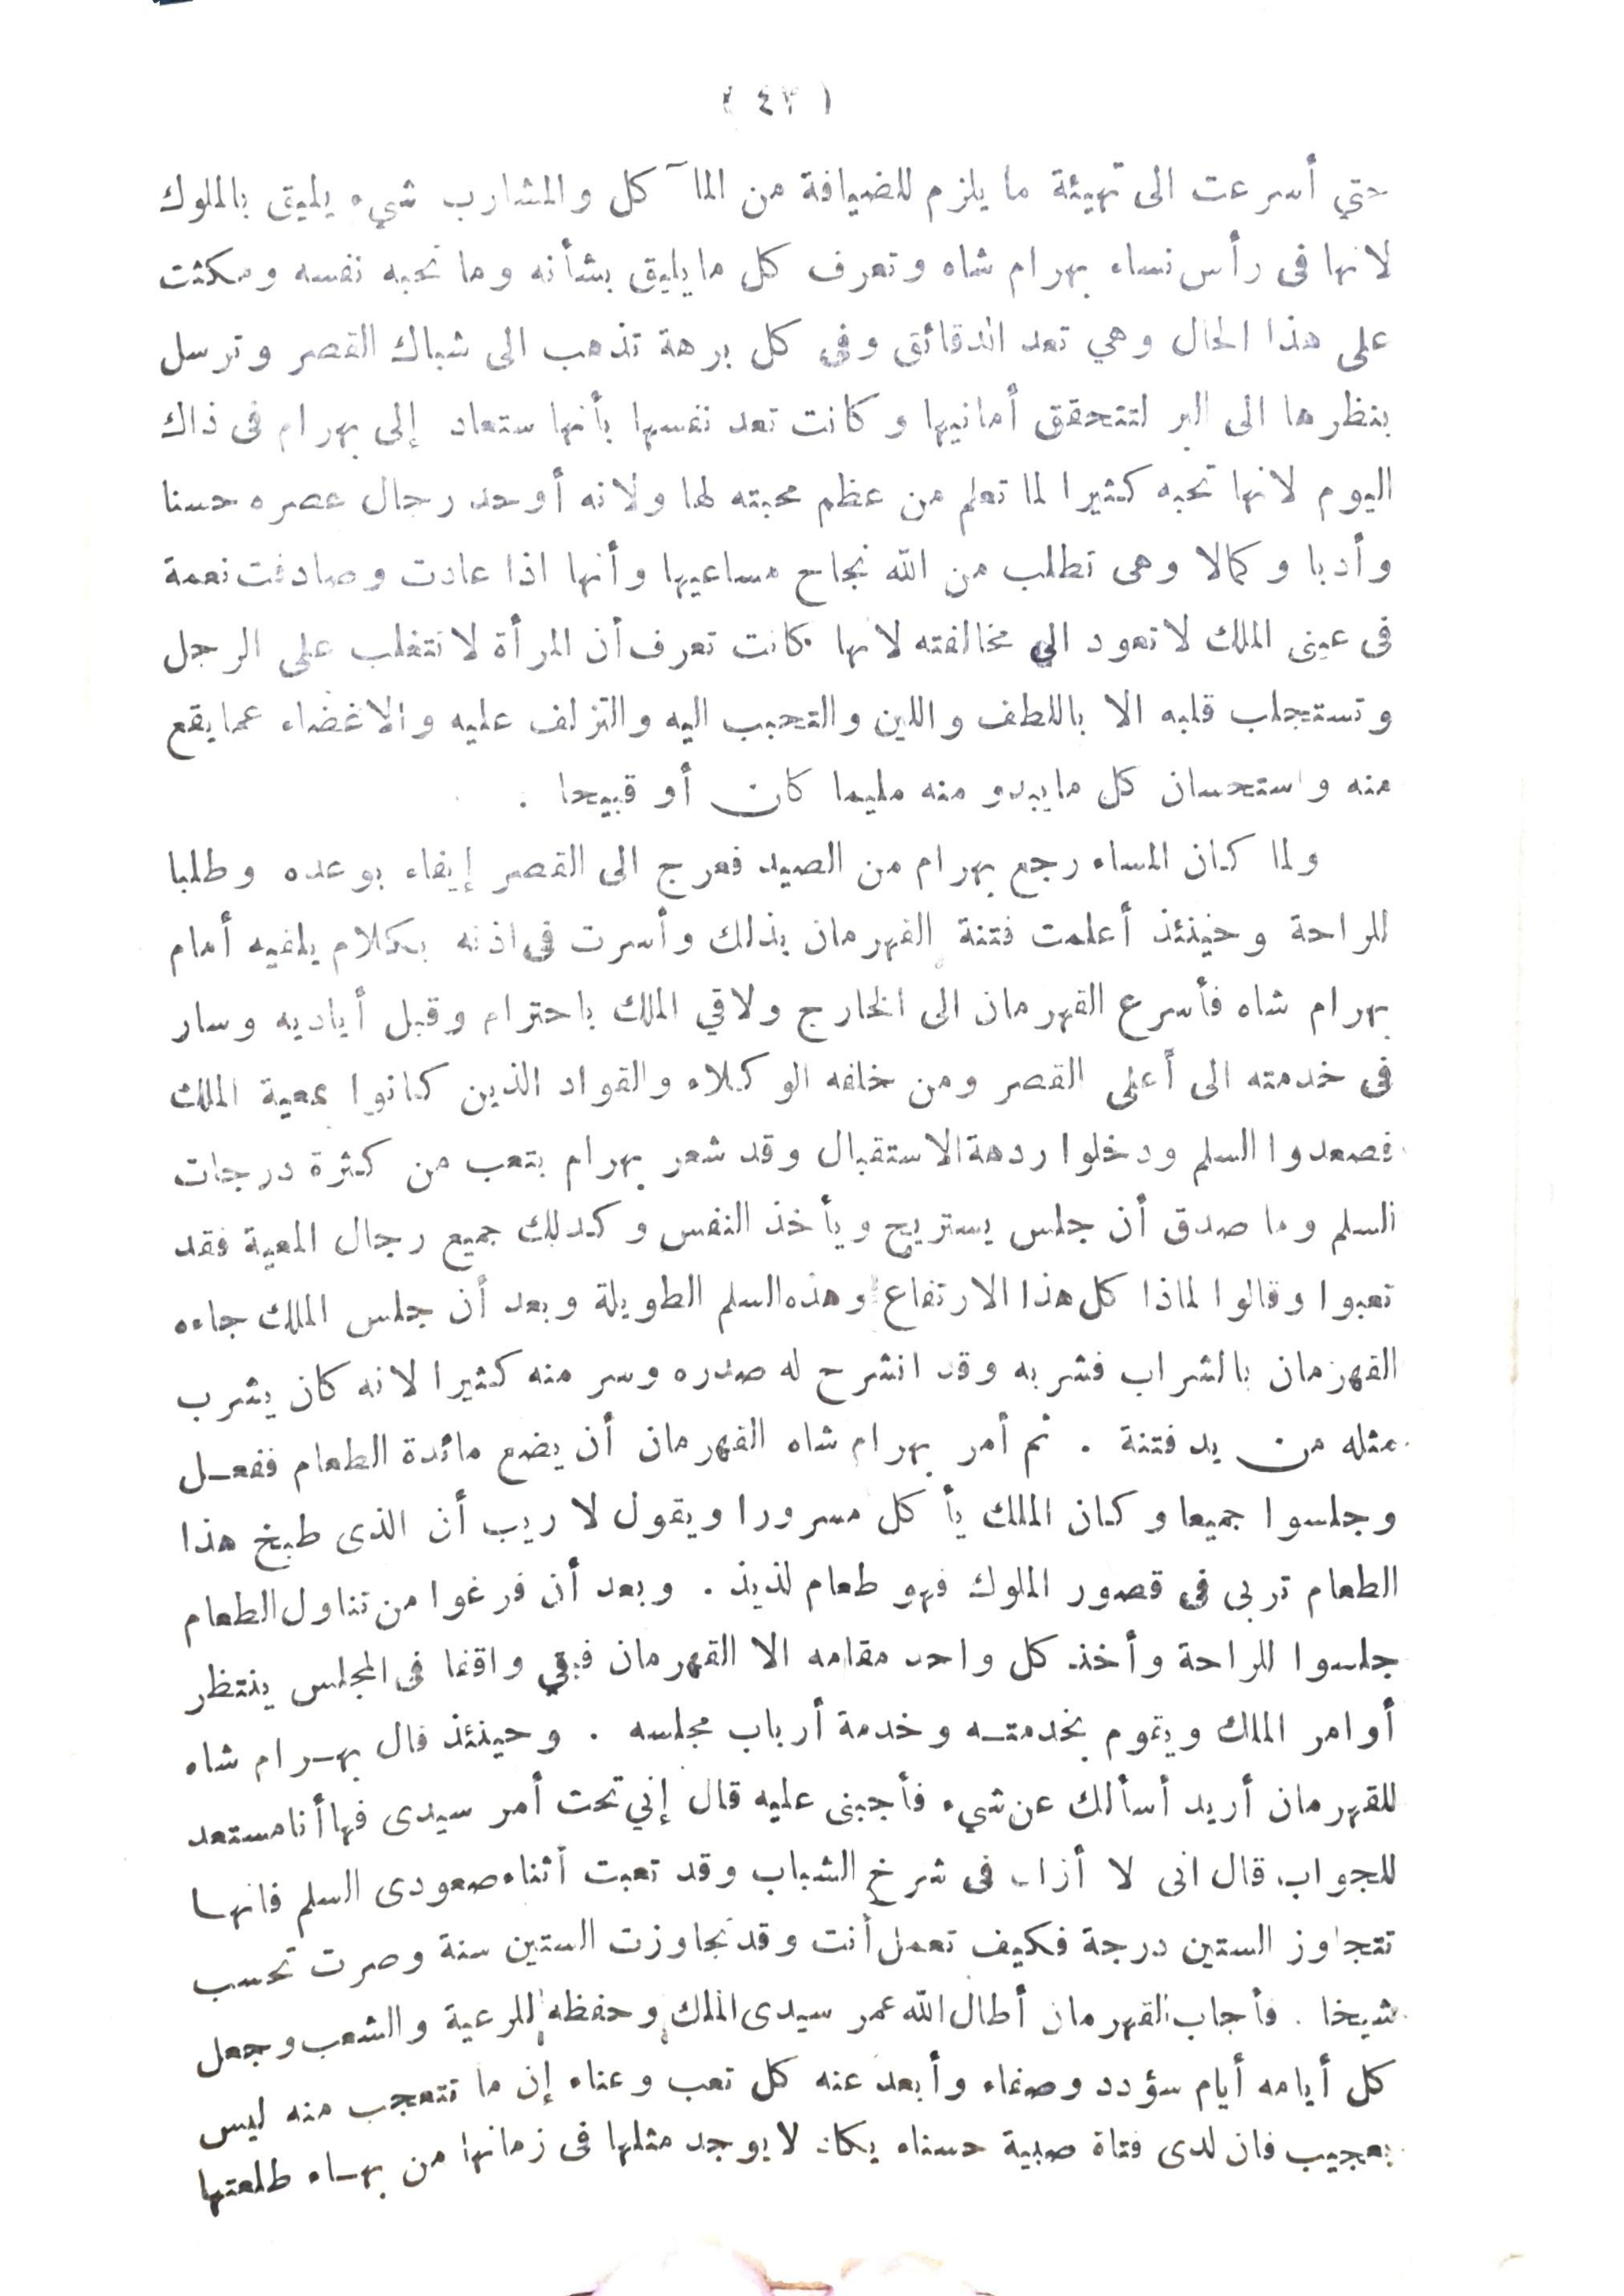 ( ٤٣ )
حتي أسرعت الى تهيئة ما يلزم للضيافة من المآ كل والمشارب شيء يليق بالملوك
لانها فى رأس نساء بهرام شاه وتعرف كل مايليق بشأنه وما تحبه نفسه ومكثت
على هذا الحال وهي تعد الدقائق وفى كل برهة تذهب الى شباك القصر وترسل
بنظرها الى البر لتتحقق أمانيها وكانت تعد نفسها بأنها ستعاد إلى بهرام فى ذاك
اليوم لانها تحبه كثيرا لما تعلم من عظم محبته لها ولانه أوحد رجال عصره حسنا
وأدبا وكمالا وهى تطلب من الله نجاح مساعيها وأنها اذا عادت وصادفت نعمة
فى عينى الملك لا تعود الى مخالفته لانها كانت تعرف أن المرأة لا تتغلب على الرجل
وتستجلب قلبه الا باللطف واللين والتحبب اليه والتزلف عليه والاغضاء عمايقع
منه واستحسان كل مايبدو منه مليحا كان أو قبيحا .
ولما كان المساء رجع بهرام من الصيد فعرج الى القصر إيفاء بوعده وطلبا
للراحة وحينئذ أعلمت فتنة القهرمان بذلك وأسرت فى اذنه بكلام يلقيه أمام
بهرام شاه فأسرع القهرمان الى الخارج ولاقي الملك باحترام وقبل أياديه وسار
فى خدمته الى أعلى القصر ومن خلفه الوكلاء والقواد الذين كانوا بمعية الملك
فصعدوا السلم ودخلوا ردهة الاستقبال وقد شعر بهرام بتعب من كثرة درجات
السلم وما صدق أن جلس يستريح ويأخذ النفس وكذلك جميع رجال المعية فقد
تعبوا وقالوا لماذا كل هذا الارتفاع وهذه السلم الطويلة وبعد أن جلس الملك جاءه
القهرمان بالشراب فشربه وقد انشرح له صدره وسر منه كثيرا لانه كان يشرب
مثله من يد فتنة . ثم أمر بهرام شاه القهرمان أن يضع مائدة الطعام ففعل
وجلسوا جميعا وكان الملك يأ كل مسرورا ويقول لا ريب أن الذى طبخ هذا
الطعام تربى فى قصور الملوك فهو طعام لذيذ . وبعد أن فرغوا من تناول الطعام
جلسوا للراحة وأخذ كل واحد مقامه الا القهرمان فبقي واقفا فى المجلس ينتظر
أوامر الملك ويقوم بخدمته وخدمة أرباب مجلسه . وحينئذ قال بهرام شاه
للقهرمان أريد أسألك عن شيء فأجبنى عليه قال إني تحت أمر سيدى فها أنا مستعد
للجواب. قال انى لا أزال فى شرخ الشباب وقد تعبت أثناء صعودى السلم فانها
تتجاوز الستين درجة فكيف تعمل أنت وقد تجاوزت الستين سنة وصرت تحسب
شيخا . فأجاب القهرمان أطال الله عمر سيدى الملك وحفظه للرعية والشعب وجعل
كل أيامه أيام سؤدد وصفاء وأبعد عنه كل تعب وعناء إن ما تتعجب منه ليس
بعجيب فان لدى فتاة صبية حسناء يكاد لايوجد مثلها فى زمانها من بهاء طلعتها